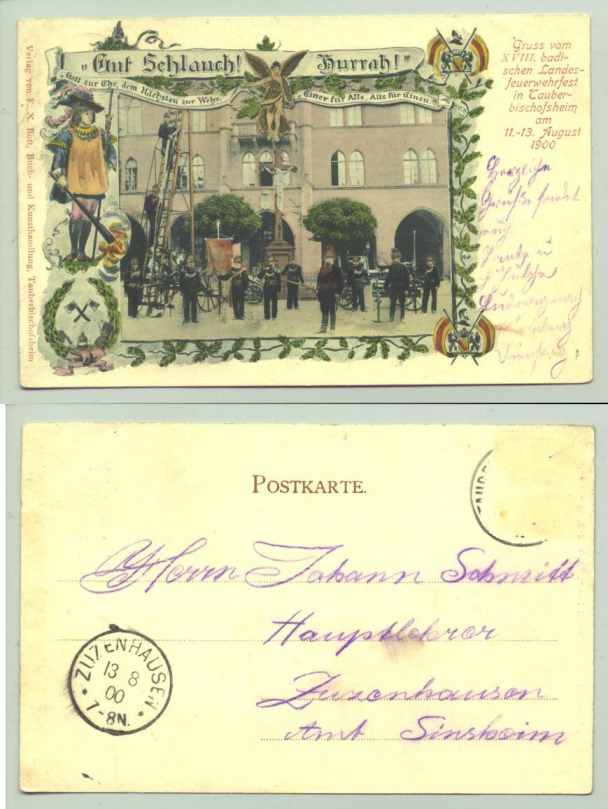 „Gut Schlauch! Hurrah!“
Gott zur Ehr, dem Nächsten zur Wehr.
Einer für Alle, Alle für Einen.
Gruss vom
XVIII. badi-
schen Landes-
feuerwehrfest
in Tauber-
bischofsheim
am
11.-13. August
1900
Herzliche
Grüße sendet
Verlag von F. X. Bott, Buch- und Kunsthandlung, Tauberbischofsheim
POSTKARTE.
Herrn Johann Schmitt
Hauptlehrer
Zuzenhausen
Amt Sinsheim
ZUZENHAUSEN
13 8
00
7-8N.